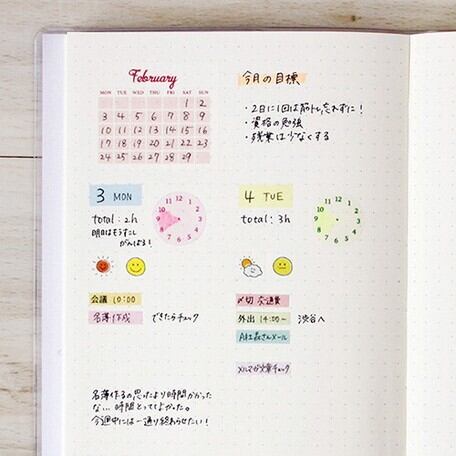 February
MON TUE WED THU FRI SAT SUN
1 2
3 4 5 6 7 8 9
10 11 12 13 14 15 16
17 18 19 20 21 22 23
24 25 26 27 28 29
今月の目標
・2日に1回は筋トレ忘れずに!
・資格の勉強
・残業は少なくする
3 MON
total:2h
明日はもうすこし
がんばる!
12 1 2 3 4 5 6 7 8 9 10 11
4 TUE
total:3h
12 1 2 3 4 5 6 7 8 9 10 11
会議 10:00
名簿作成 できたらチェック
〆切 交通費
外出 14:00~ 渋谷へ
さんメール
メルマガ文章チェック
名簿作るの思ったより時間かかった
な… 時間とってよかった。
今週中には一通り終わらせたい!